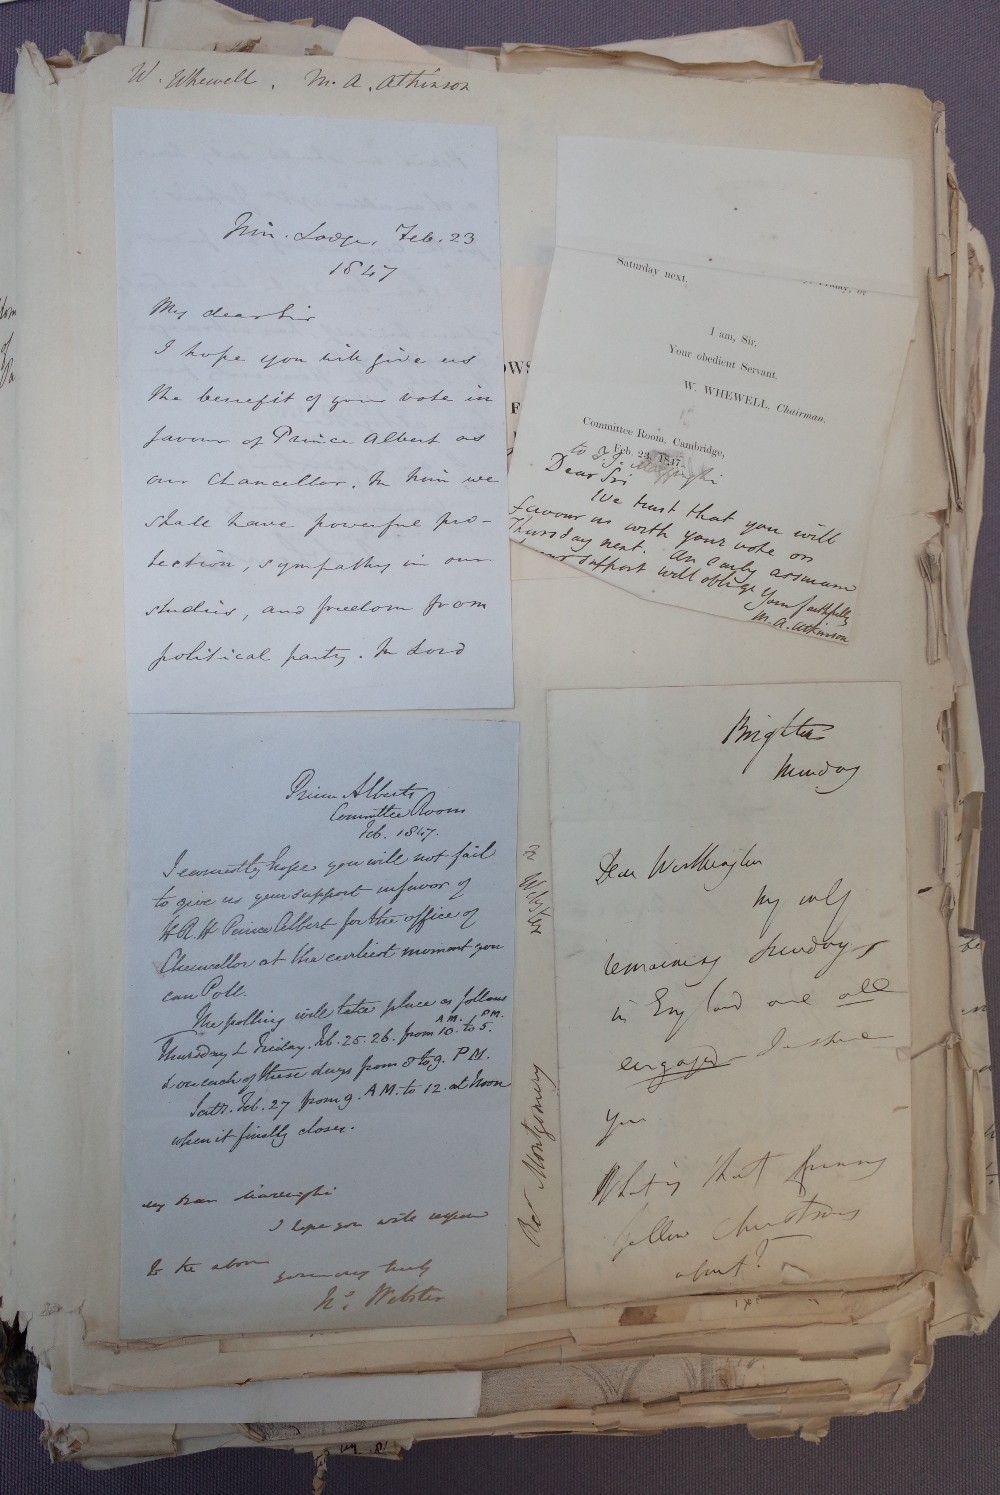 W. Whewell. M. A. Atkinson
Trin. Lodge, Feb. 23
1847
My dear Sir
I hope you will give us
the benefit of your vote in
favour of Prince Albert as
our Chancellor. In him we
shall have powerful pro-
tection, sympathy in our
studies, and freedom from
political party. In Lord
Saturday next.
Friday, or
I am, Sir,
Your obedient Servant,
W. WHEWELL, Chairman.
Committee Room, Cambridge,
Feb. 23, 1847.
to T. J.
Dear Sir
We trust that you will
favour us with your vote on
Thursday next. An early assurance
your support will oblige
Yours faithfully
M. A. Atkinson
Prince Alberts
Committee Room
Feb. 1847.
I earnestly hope you will not fail
to give us your support in favor of
H R. H Prince Albert for the office of
Chancellor at the earliest moment you
can Poll.
The polling will take place as follows
Thursday & Friday. Feb. 25. 26. from 10. A.M. to 5. P.M.
& on each of these days from 8 to 9. P.M.
Satr. Feb. 27 from 9. A.M. to 12. at Noon
when it finally closes.
My Dear
I hope you will
to the above
yours very truly
Webster
Revd Montgomery
Brighton
Monday
Dear Worthington
My only
remaining Sundays
in England are all
engaged I
you
What is that funny
fellow
about?